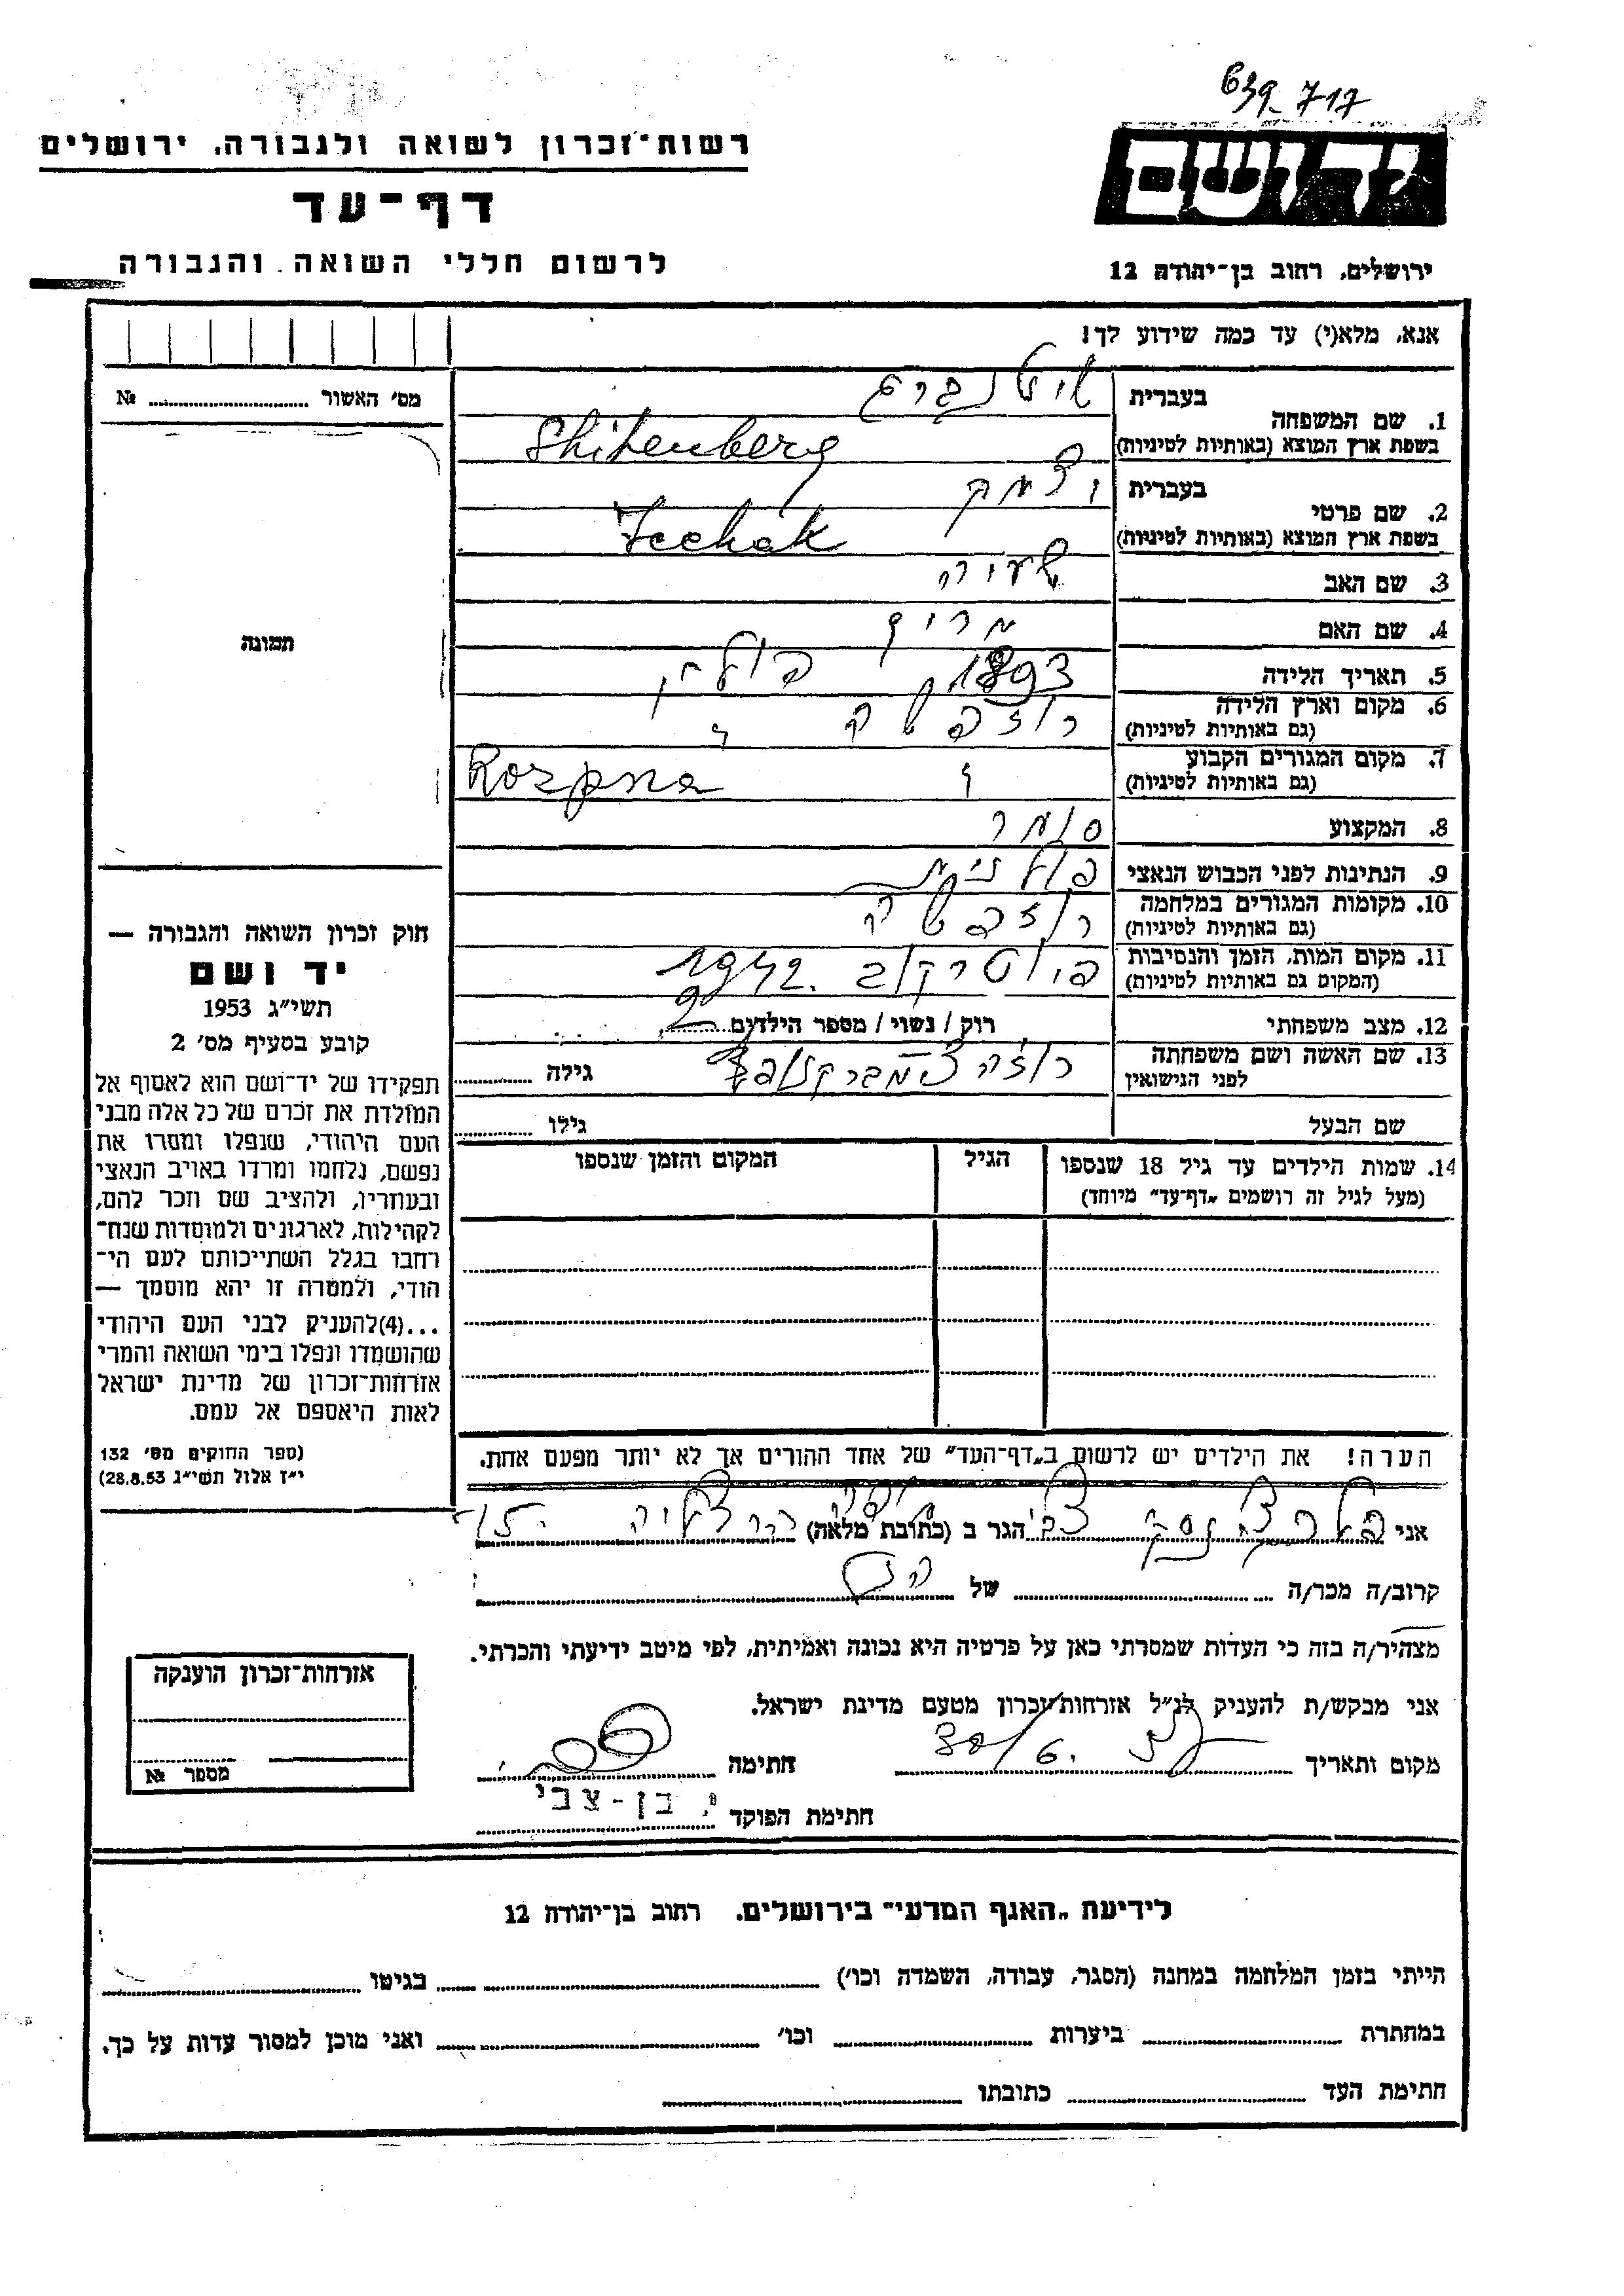 639_717
רשות־זכרון לשואה ולגבורה, ירושלים
יד ושם
דף-עד
לרשום חללי השואה והגבורה
ירושלים, רחוב בן־יהודה 12
אנא, מלא(י) עד כמה שידוע לך!
מס׳ האשור № 
1. שם המשפחה בעברית שיטנברג
בשפת ארץ המוצא (באותיות לטיניות) Shitenberg
2. שם פרטי בעברית יצחק
בשפת ארץ המוצא (באותיות לטיניות) Icchak
3. שם האב שעיה
4. שם האם
5. תאריך הלידה 1893 פולין
6. מקום וארץ הלידה
(גם באותיות לטיניות)
7. מקום המגורים הקבוע
(גם באותיות לטיניות) Rozpna
8. המקצוע סוחר
9. הנתינות לפני הכבוש הנאצי פולנית
10. מקומות המגורים במלחמה
(גם באותיות לטיניות)
11. מקום המות, הזמן והנסיבות פיוטרקוב 1942.
(המקום גם באותיות לטיניות)
12. מצב משפחתי רוק / נשוי / מספר הילדים 2
13. שם האשה ושם משפחתה רוזה גילה
לפני הנישואין
שם הבעל גילו
14. שמות הילדים עד גיל 18 שנספו הגיל המקום והזמן שנספו
(מעל לגיל זה רושמים „דף־עד״ מיוחד)
הערה! את הילדים יש לרשום ב„דף־העד״ של אחד ההורים אך לא יותר מפעם אחת.
תמונה
חוק זכרון השואה והגבורה —
יד ושם
תשי״ג 1953
קובע בסעיף מס׳ 2
תפקידו של יד־ושם הוא לאסוף אל
המולדת את זכרם של כל אלה מבני
העם היהודי, שנפלו ומסרו את
נפשם, נלחמו ומרדו באויב הנאצי
ובעוזריו, ולהציב שם וזכר להם,
לקהילות, לארגונים ולמוסדות שנח־
רבו בגלל השתייכותם לעם הי־
הודי, ולמטרה זו יהא מוסמך —
...(4)להעניק לבני העם היהודי
שהושמדו ונפלו בימי השואה והמרי
אזרחות־זכרון של מדינת ישראל
לאות היאספם אל עמם.
(ספר החוקים מס׳ 132
י״ז אלול תשי״ג 28.8.53)
אני צבי הגר ב (כתובת מלאה) הרצליה
קרוב/ה מכר/ה של
מצהיר/ה בזה כי העדות שמסרתי כאן על פרטיה היא נכונה ואמיתית, לפי מיטב ידיעתי והכרתי.
אני מבקש/ת להעניק לנ״ל אזרחות־זכרון מטעם מדינת ישראל.
מקום ותאריך 30/6. חתימה
חתימת הפוקד י. בן-צבי
אזרחות־זכרון הוענקה
מספר №
לידיעת „האגף המדעי״ בירושלים, רחוב בן־יהודה 12
הייתי בזמן המלחמה במחנה (הסגר, עבודה, השמדה וכו׳) בגיטו
במחתרת ביערות וכו׳ ואני מוכן למסור עדות על כך.
חתימת העד כתובתו